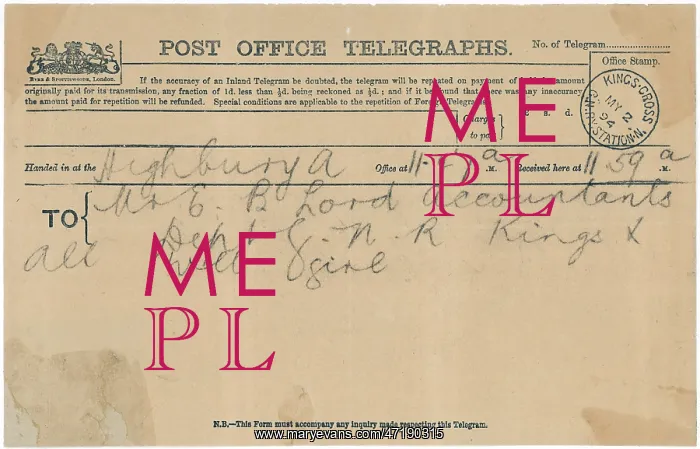 POST OFFICE TELEGRAPHS.
No. of Telegram
Office Stamp.
If the accuracy of an Inland Telegram be doubted, the telegram will be repeated on payment of amount
originally paid for its transmission, any fraction of 1d. less than ½d. being reckoned as ½d.; and if it be found that there was any inaccuracy
the amount paid for repetition will be refunded. Special conditions are applicable to the repetition of Foreign Telegrams.
KINGS-CROSS
MY 2
94
STATION-N.
£ s. d.
Charges
to pay
Handed in at the Highbury A Office at 11. a .M. Received here at 11 59 a .M.
TO { Mr E. B Lord Accountants
Dept G. N. R Kings X
All well girl
ME
PL
ME
PL
N.B.—This Form must accompany any inquiry made respecting this Telegram.
www.maryevans.com/47190315